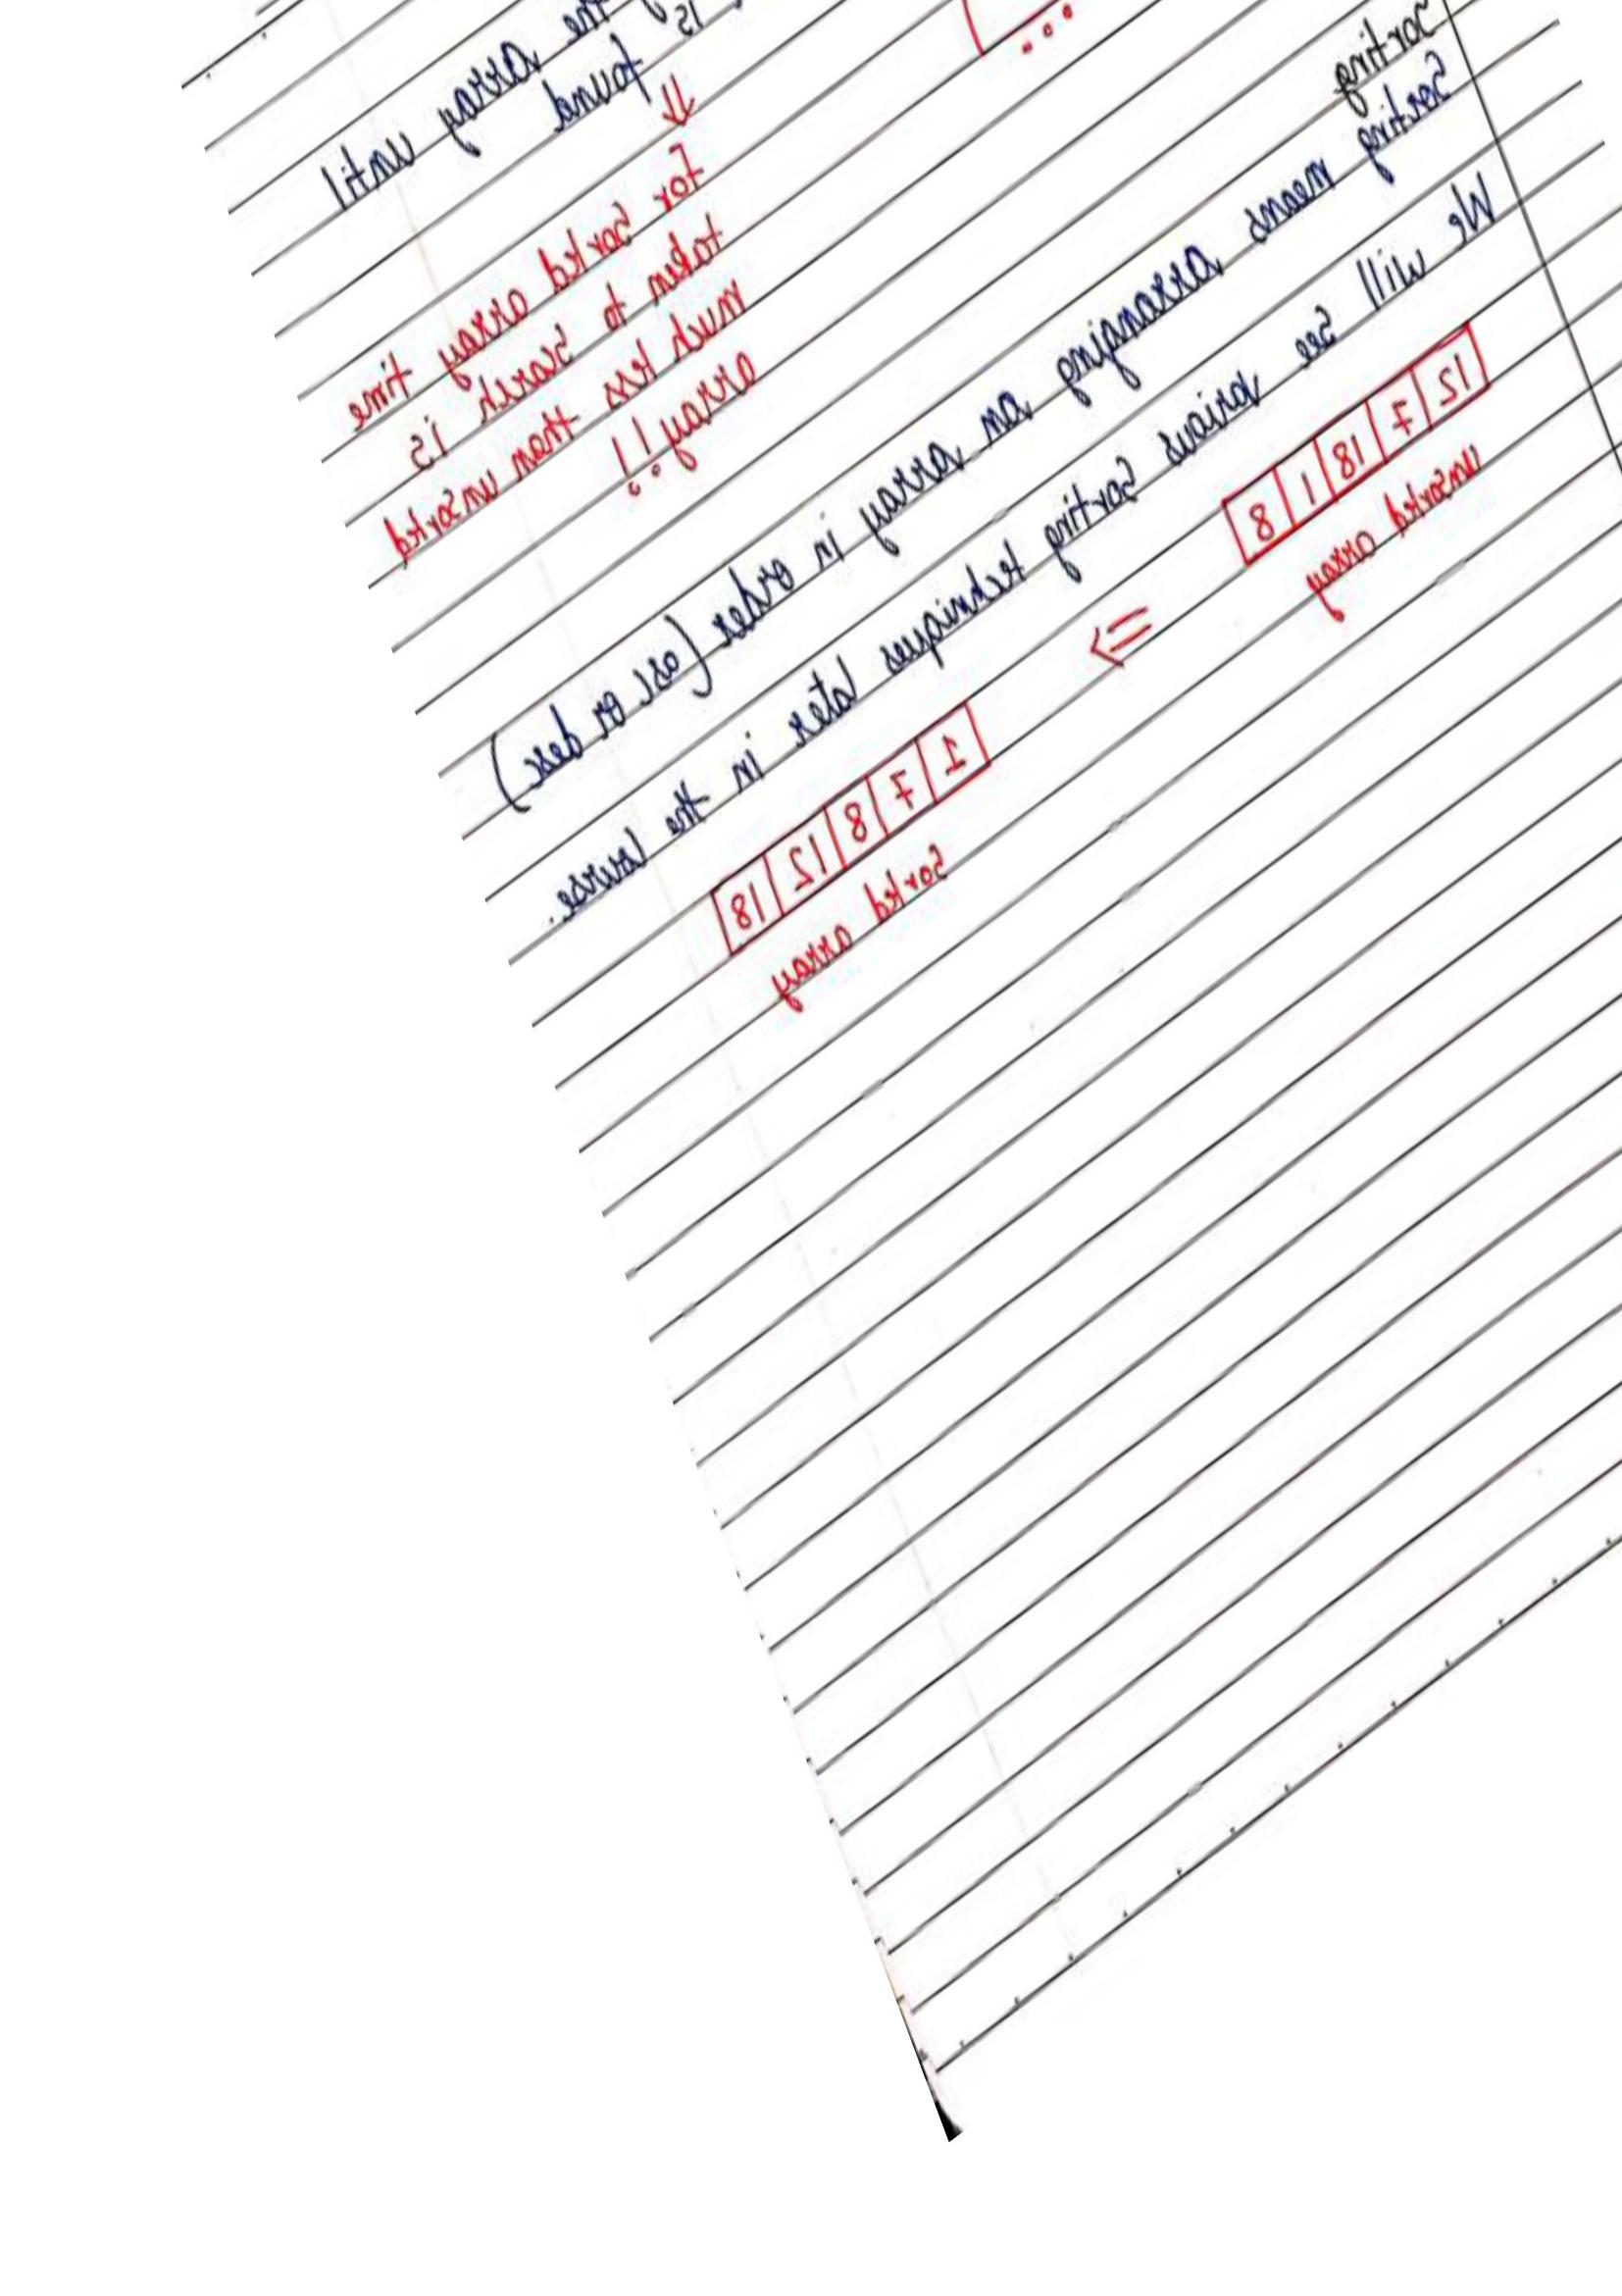 the array until
is found
⇓
for sorted array time
taken to search is
much less than unsorted
array !!
Sorting
Sorting means arranging an array in order (asc or desc)
We will see various sorting techniques later in the course.
12 7 18 1 8 ⇒ 1 7 8 12 18
unsorted array sorted array